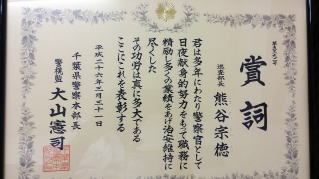 賞詞
巡査部長
熊谷宗徳
君は多年にわたり警察官として
日夜献身的努力をもって職務に
精励し多くの業績をあげ治安維持に
尽くした
その功労は真に多大である
ここにこれを表彰する
平成二十六年三月三十一日
千葉県警察本部長
警視監
大山憲司